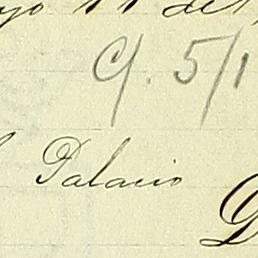 yo 11 de
C/. 5/1
Palacio